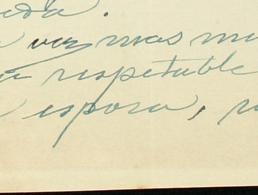 eda.
vez mas mu
a respetable
espora, r